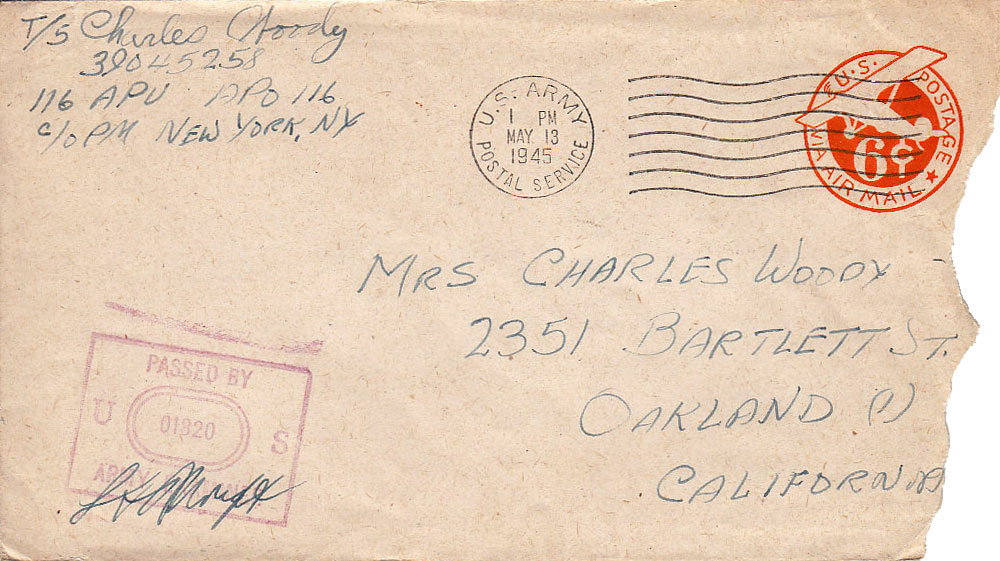 T/5 Charles Woody
39045258
116 APU APO 116
c/o PM NEW YORK, NY
U.S. ARMY
1 PM
MAY 13
1945
POSTAL SERVICE
U.S. POSTAGE
6¢
VIA AIR MAIL
MRS CHARLES WOODY
2351 BARTLETT ST.
OAKLAND (1)
CALIFORNIA
PASSED BY
U 01820 S
ARMY